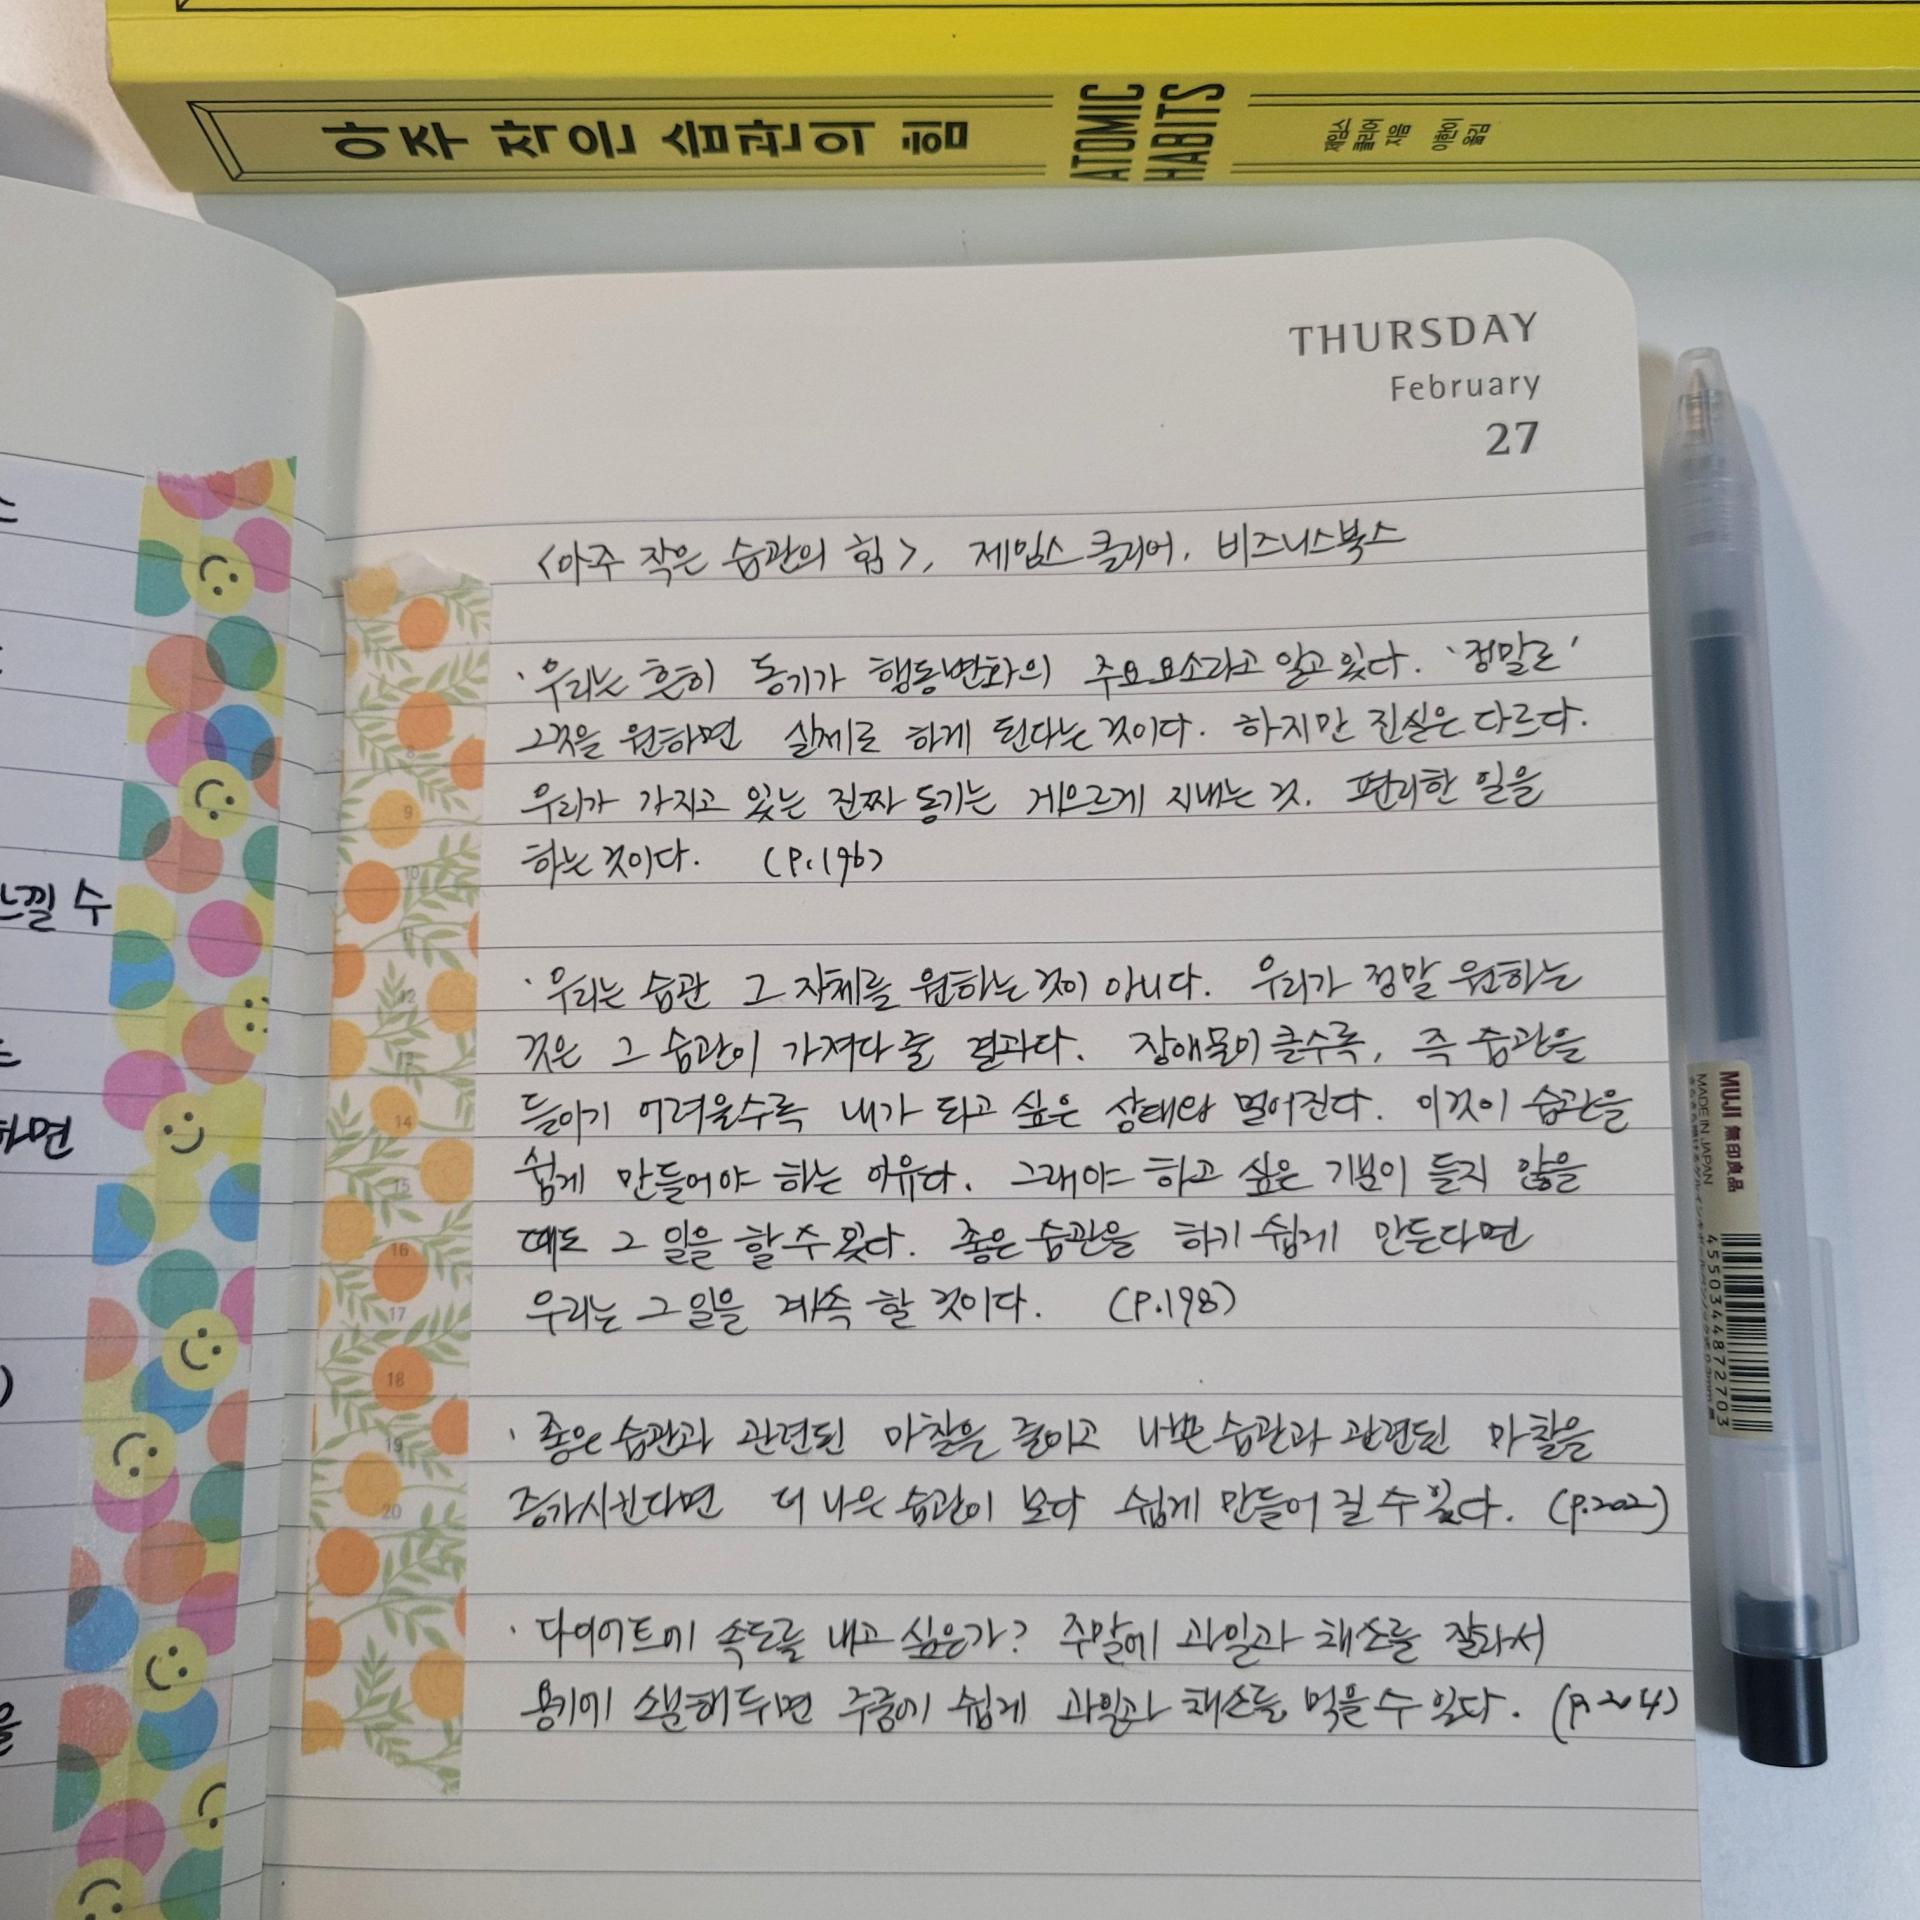 아주 작은 습관의 힘
ATOMIC
HABITS
제임스
클리어
지음
이한이
옮김
느낄 수
하면
THURSDAY
February
27
<아주 작은 습관의 힘>, 제임스 클리어, 비즈니스북스
· 우리는 흔히 동기가 행동변화의 주요 요소라고 알고 있다. '정말로'
그것을 원하면 실제로 하게 된다는 것이다. 하지만 진실은 다르다.
우리가 가지고 있는 진짜 동기는 게으르게 지내는 것. 편리한 일을
하는 것이다. (P.196)
· 우리는 습관 그 자체를 원하는 것이 아니다. 우리가 정말 원하는
것은 그 습관이 가져다 줄 결과다. 장애물이 클수록, 즉 습관을
들이기 어려울수록 내가 되고 싶은 상태와 멀어진다. 이것이 습관을
쉽게 만들어야 하는 이유다. 그래야 하고 싶은 기분이 들지 않을
때도 그 일을 할 수 있다. 좋은 습관을 하기 쉽게 만든다면
우리는 그 일을 계속 할 것이다. (P.198)
· 좋은 습관과 관련된 마찰을 줄이고 나쁜 습관과 관련된 마찰을
증가시킨다면 더 나은 습관이 보다 쉽게 만들어 질 수 있다. (p.202)
· 다이어트에 속도를 내고 싶은가? 주말에 과일과 채소를 잘라서
용기에 소분해 두면 주중에 쉽게 과일과 채소를 먹을 수 있다. (p.204)
8
9
10
11
12
13
14
15
16
17
18
19
20
MUJI 無印良品
MADE IN JAPAN
4550344872703